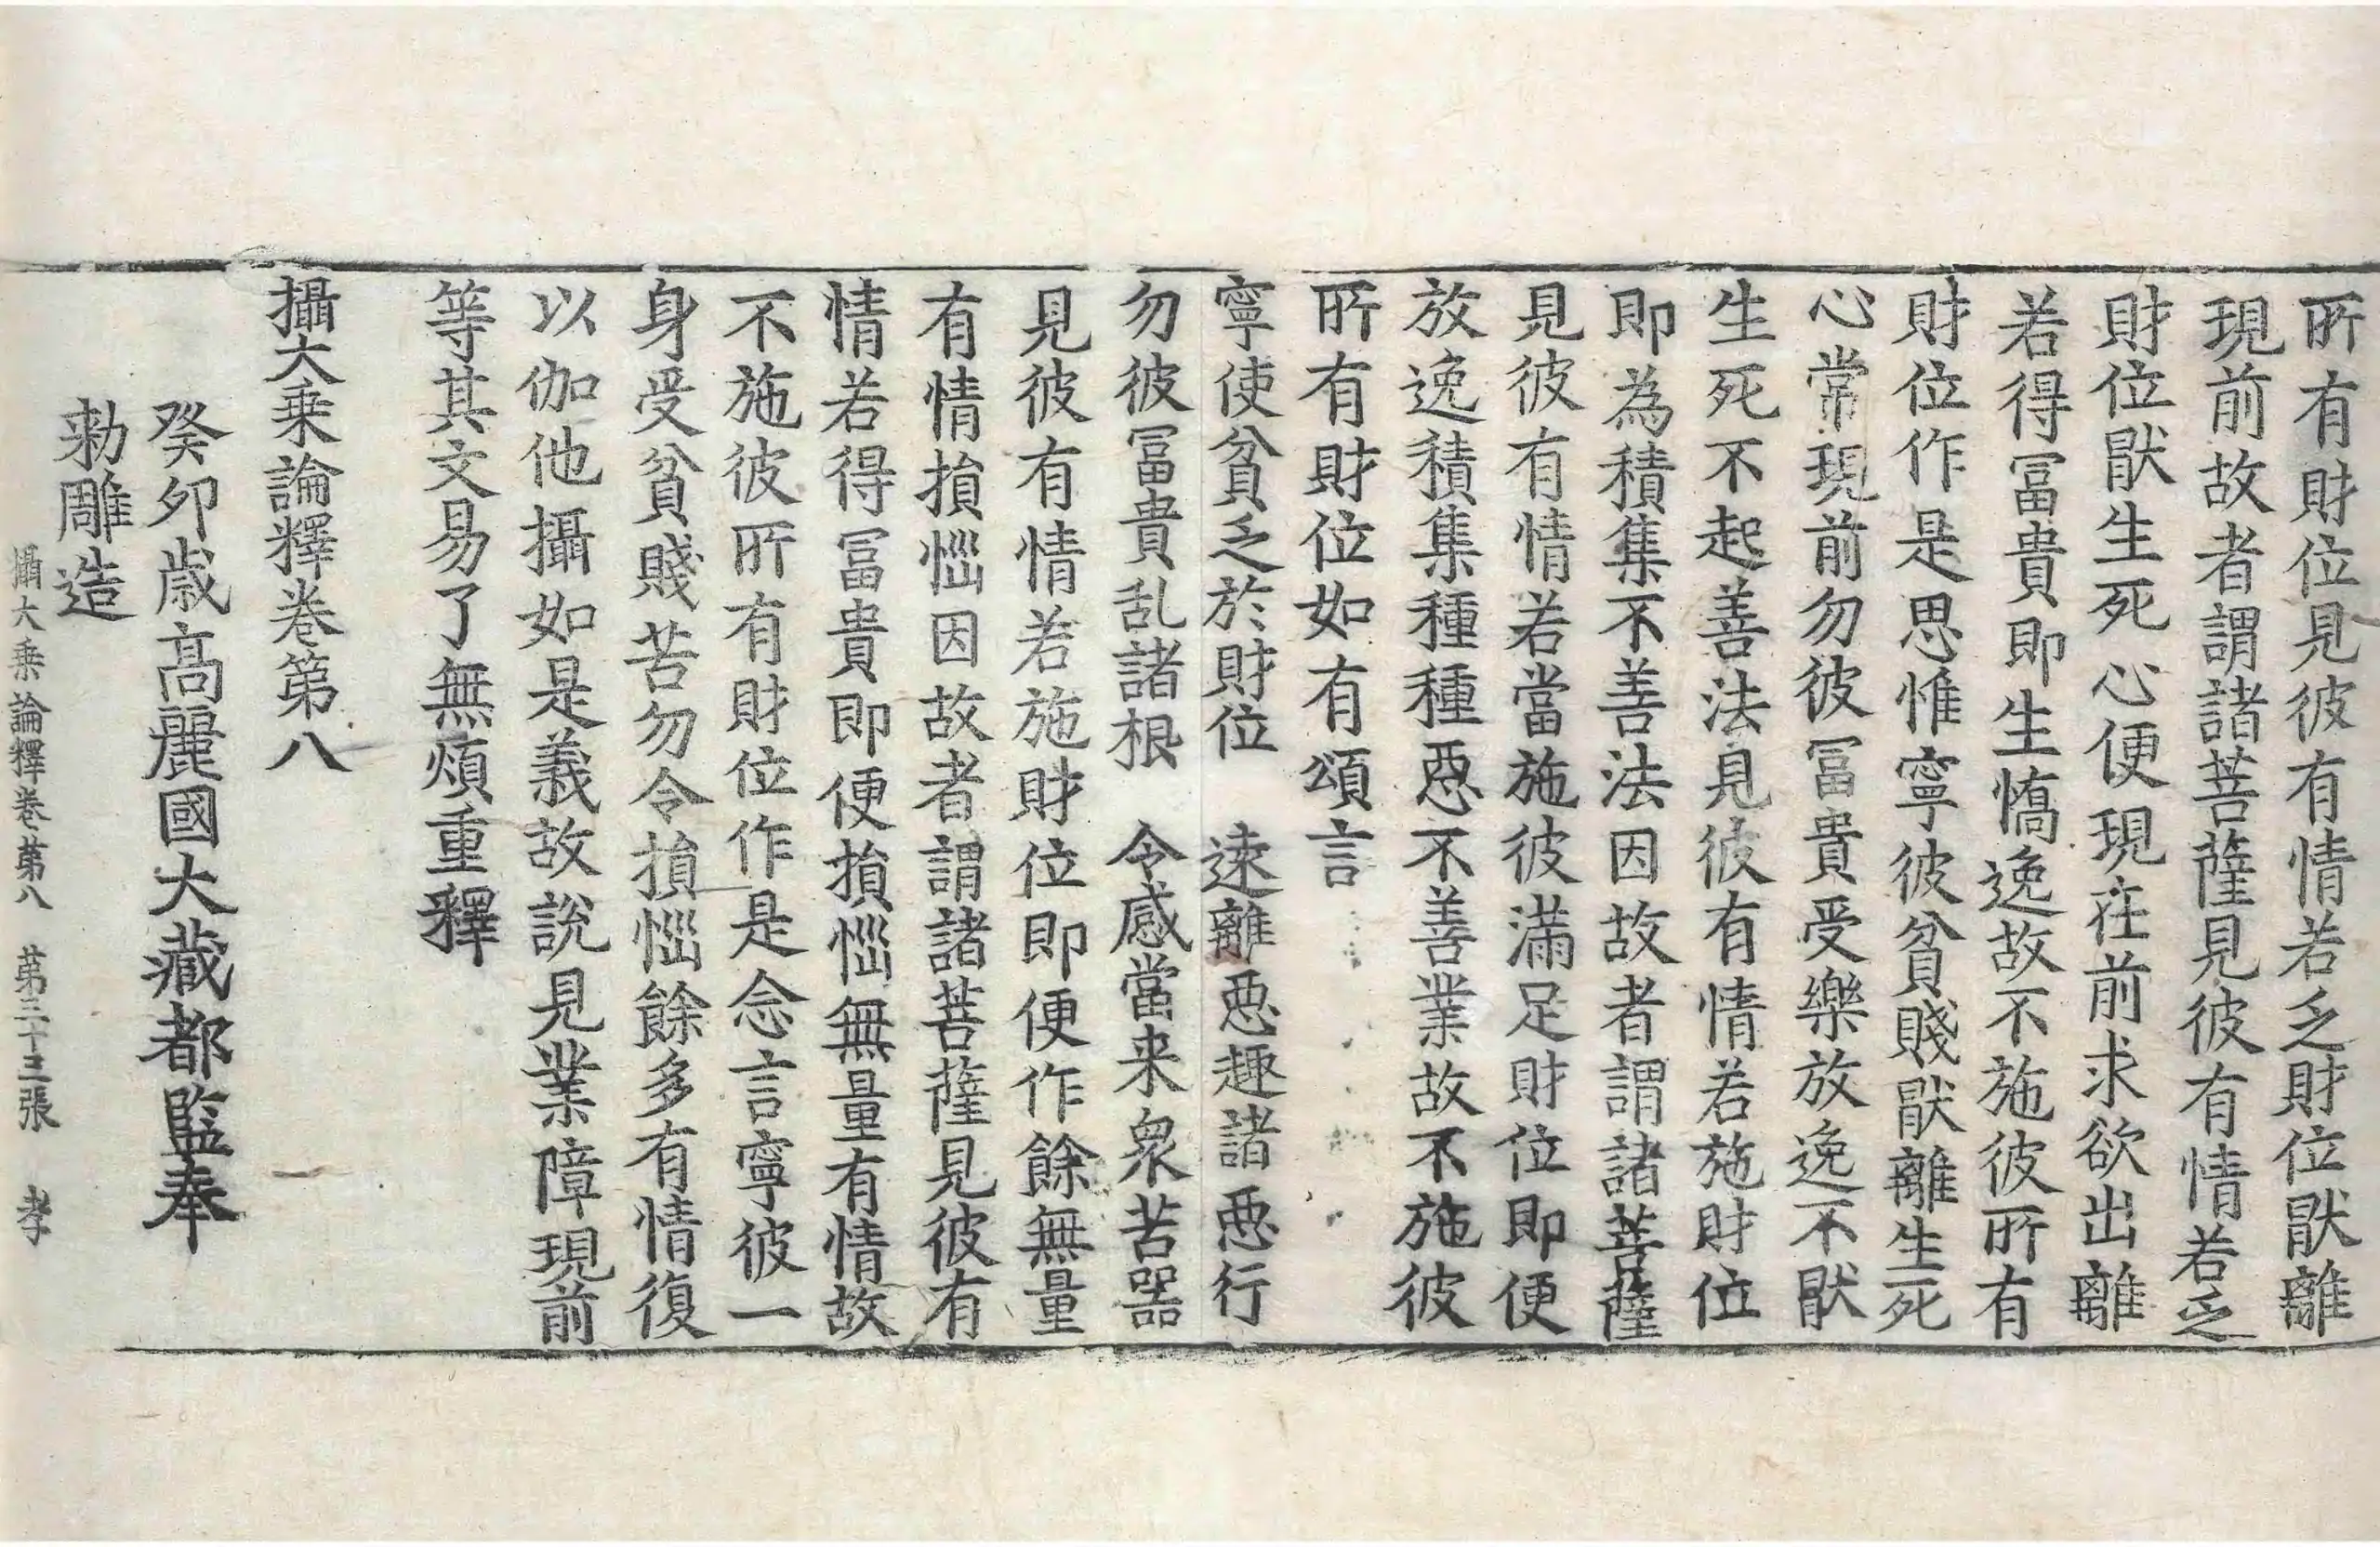 所有財位見彼有情若乏財位猒離
現前故者謂諸菩薩見彼有情若乏
財位猒生死心便現在前求欲出離
若得冨貴即生憍逸故不施彼所有
財位作是思惟寧彼貧賤猒離生死
心常現前勿彼冨貴受樂放逸不猒
生死不起善法見彼有情若施財位
即為積集不善法因故者謂諸菩薩
見彼有情若當施彼滿足財位即便
放逸積集種種惡不善業故不施彼
所有財位如有頌言
寧使貧乏於財位　逺離惡趣諸惡行
勿彼冨貴乱諸根　令感當来衆苦器
見彼有情若施財位即便作餘無量
有情損惱因故者謂諸菩薩見彼有
情若得冨貴即便損惱無量有情故
不施彼所有財位作是念言寧彼一
身受貧賤苦勿令損惱餘多有情復
以伽他攝如是義故說見業障現前
等其文易了無煩重釋
攝大乗論釋卷第八
癸卯歳高麗國大藏都監奉
勑雕造
攝大乗論釋卷第八　第二十三張　孝